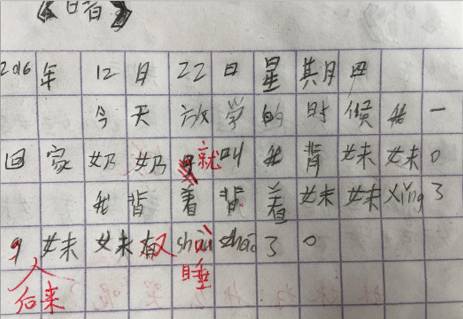 《背》
2016年12月22日星期四
今天放学的时候我一
回家奶奶就叫我背妹妹。
我背着背着妹妹xǐng3
9妹妹又shuì zháo3。
后来 睡